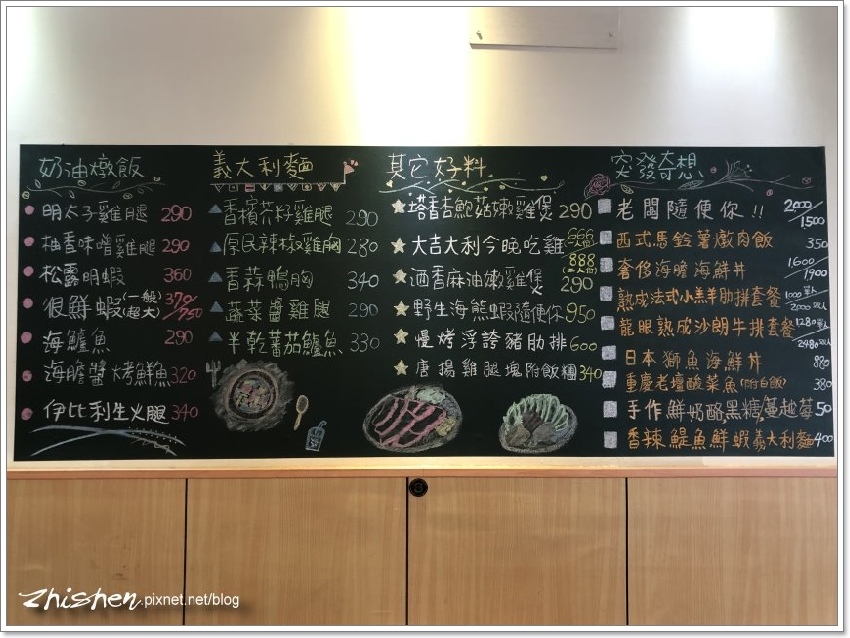 奶油燉飯
明太子雞腿 290
柚香味噌雞腿 290
松露明蝦 360
很鮮蝦(一般)(超大) 370/750
海鱸魚 290
海膽醬大烤鮮魚 320
伊比利生火腿 340
義大利麵
香檳芥籽雞腿 290
原民辣椒雞胸 280
香蒜鴨胸 340
蔬菜醬雞腿 290
半乾番茄鱸魚 330
其它好料
塔香杏鮑菇嫩雞煲 290
大吉大利今晚吃雞 666 888
酒香麻油嫩雞煲 290
野生海熊蝦隨便你 950
慢烤浮誇豬肋排 600
唐揚雞腿塊附飯糰 340
突發奇想
老闆隨便你!! 2,000/1500
西式馬鈴薯燉肉飯 350
奢侈海膽海鮮丼 1,600/1900
熟成法式小羔羊肋排套餐 1000單人 2000雙人
龍眼熟成沙朗牛排套餐 1280單人 2480雙人
日本獅魚海鮮丼 880
重慶老壇酸菜魚(附白飯) 380
手作鮮奶酪,黑糖,蔓越莓 50
香辣鯷魚鮮蝦義大利麵 400
zhishen.pixnet.net/blog